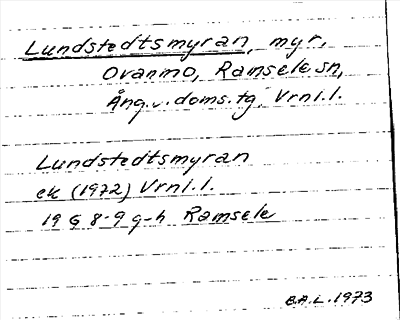 Lundstedtsmyran, myr,
Ovanmo, Ramsele sn,
Ång.v.doms.tg, Vrnl.l.
Lundstedtsmyran
ek (1972) Vrnl.l.
19 G 8-9 g-h Ramsele
B.A.L. 1973